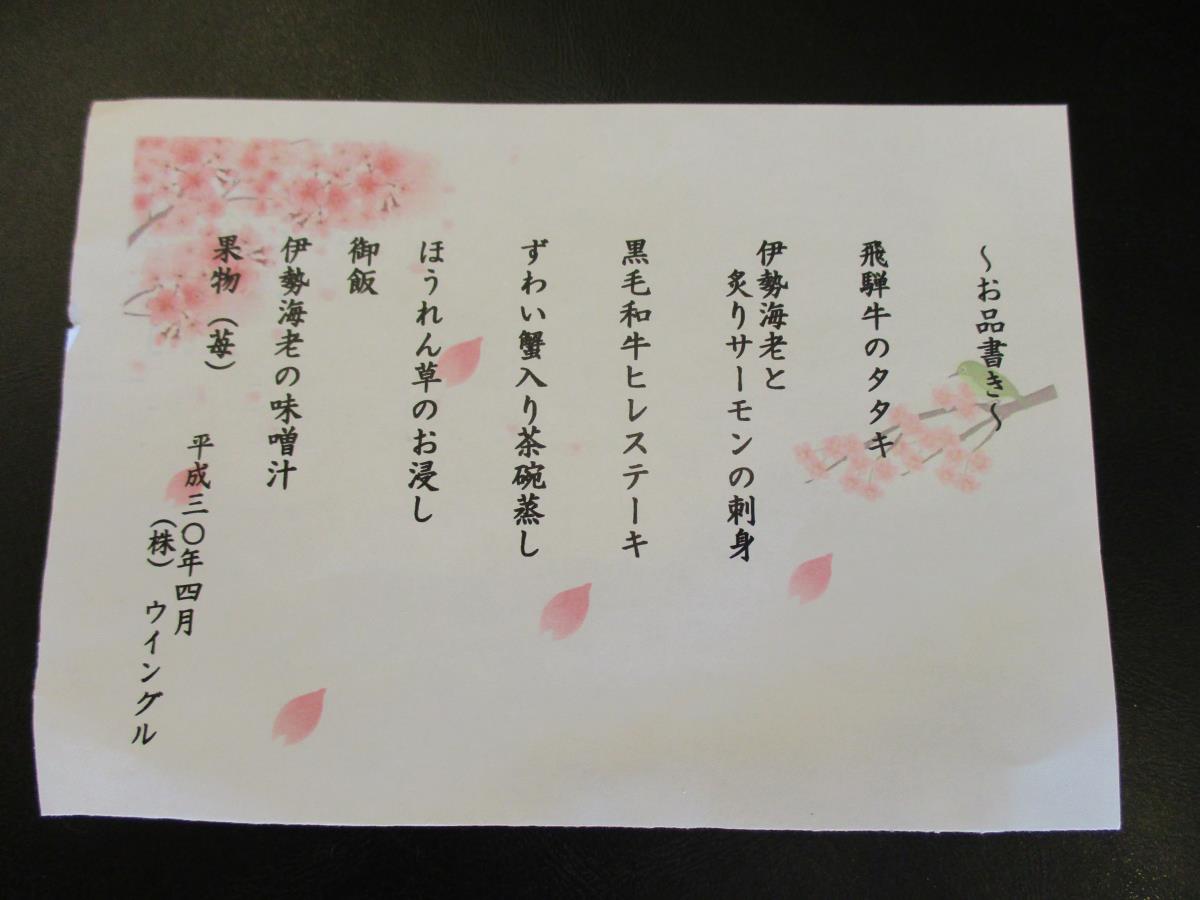 ～お品書き～
飛騨牛のタタキ
伊勢海老と
炙りサーモンの刺身
黒毛和牛ヒレステーキ
ずわい蟹入り茶碗蒸し
ほうれん草のお浸し
御飯
伊勢海老の味噌汁
果物（苺）
平成三〇年四月
（株）ウイングル